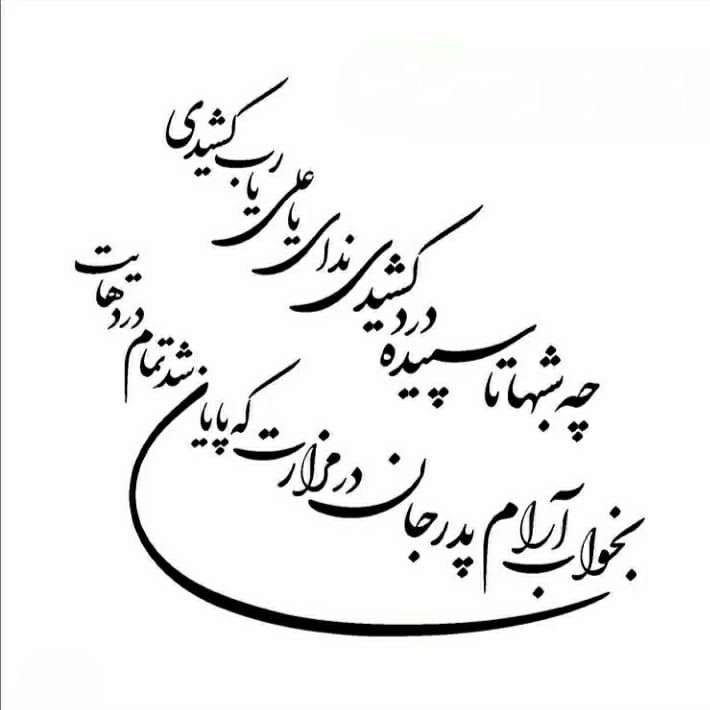 چه شبها تا سپیده درد کشیدی ندای یا علی یا رب کشیدی
بخواب آرام پدر جان در مزارت که پایان شد تمام دردهایت